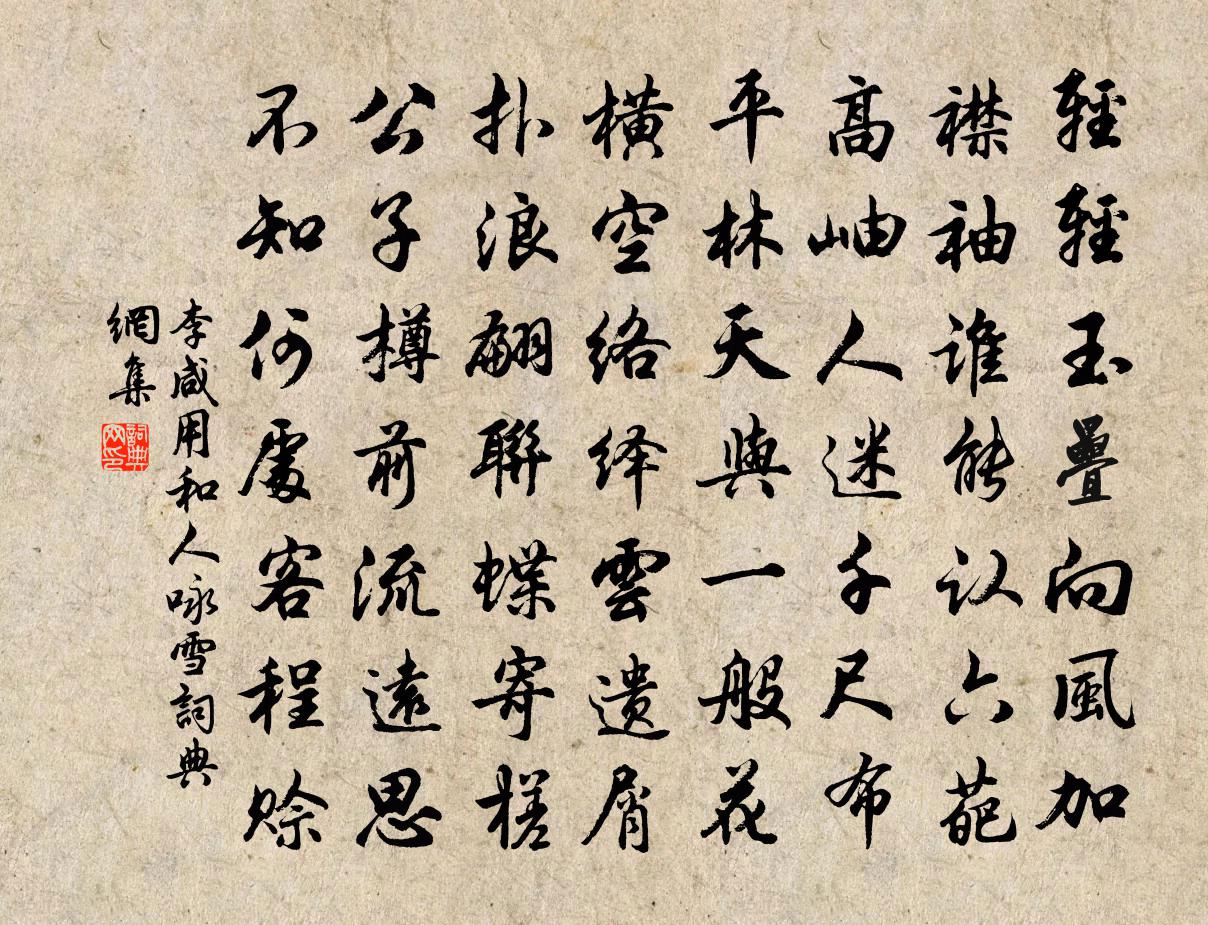 輕輕玉疊向風加
襟袖谁能认六葩
高岫人迷千尺布
平林天與一般花
橫空络绎雲遗屑
扑浪翩聯蝶寄槎
公子樽前流遠思
不知何處客程赊
李咸用和人咏雪詞典
網集
詞典网印